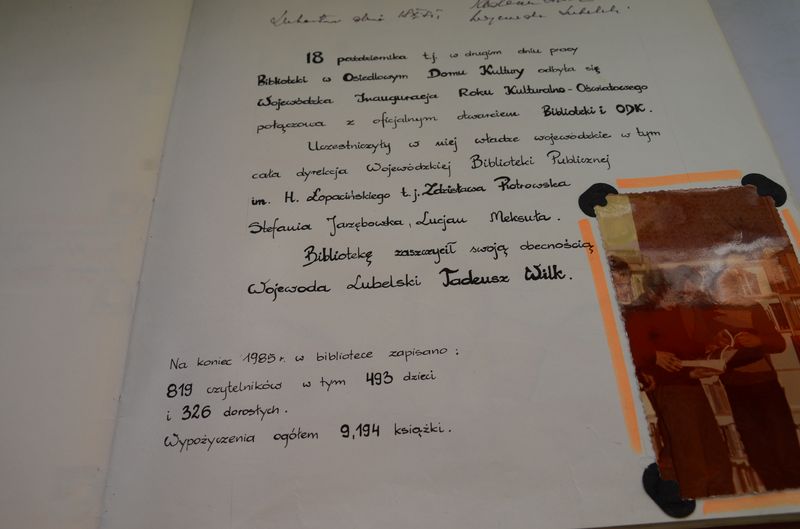 18 października t.j. w drugim dniu pracy
Biblioteki w Osiedlowym Domu Kultury odbyła się
Wojewódzka Inauguracja Roku Kulturalno-Oświatowego
połączona z oficjalnym otwarciem Biblioteki i ODK.
Uczestniczyły w niej władze wojewódzkie w tym
cała dyrekcja Wojewódzkiej Biblioteki Publicznej
im. H. Łopacińskiego t.j. Zdzisława Piotrowska
Stefania Jarzębowska, Lucjan Meksuła.
Bibliotekę zaszczycił swoją obecnością
Wojewoda Lubelski Tadeusz Wilk.
Na koniec 1985 r. w bibliotece zapisano:
819 czytelników w tym 493 dzieci
i 326 dorosłych.
Wypożyczenia ogółem 9,194 książki.